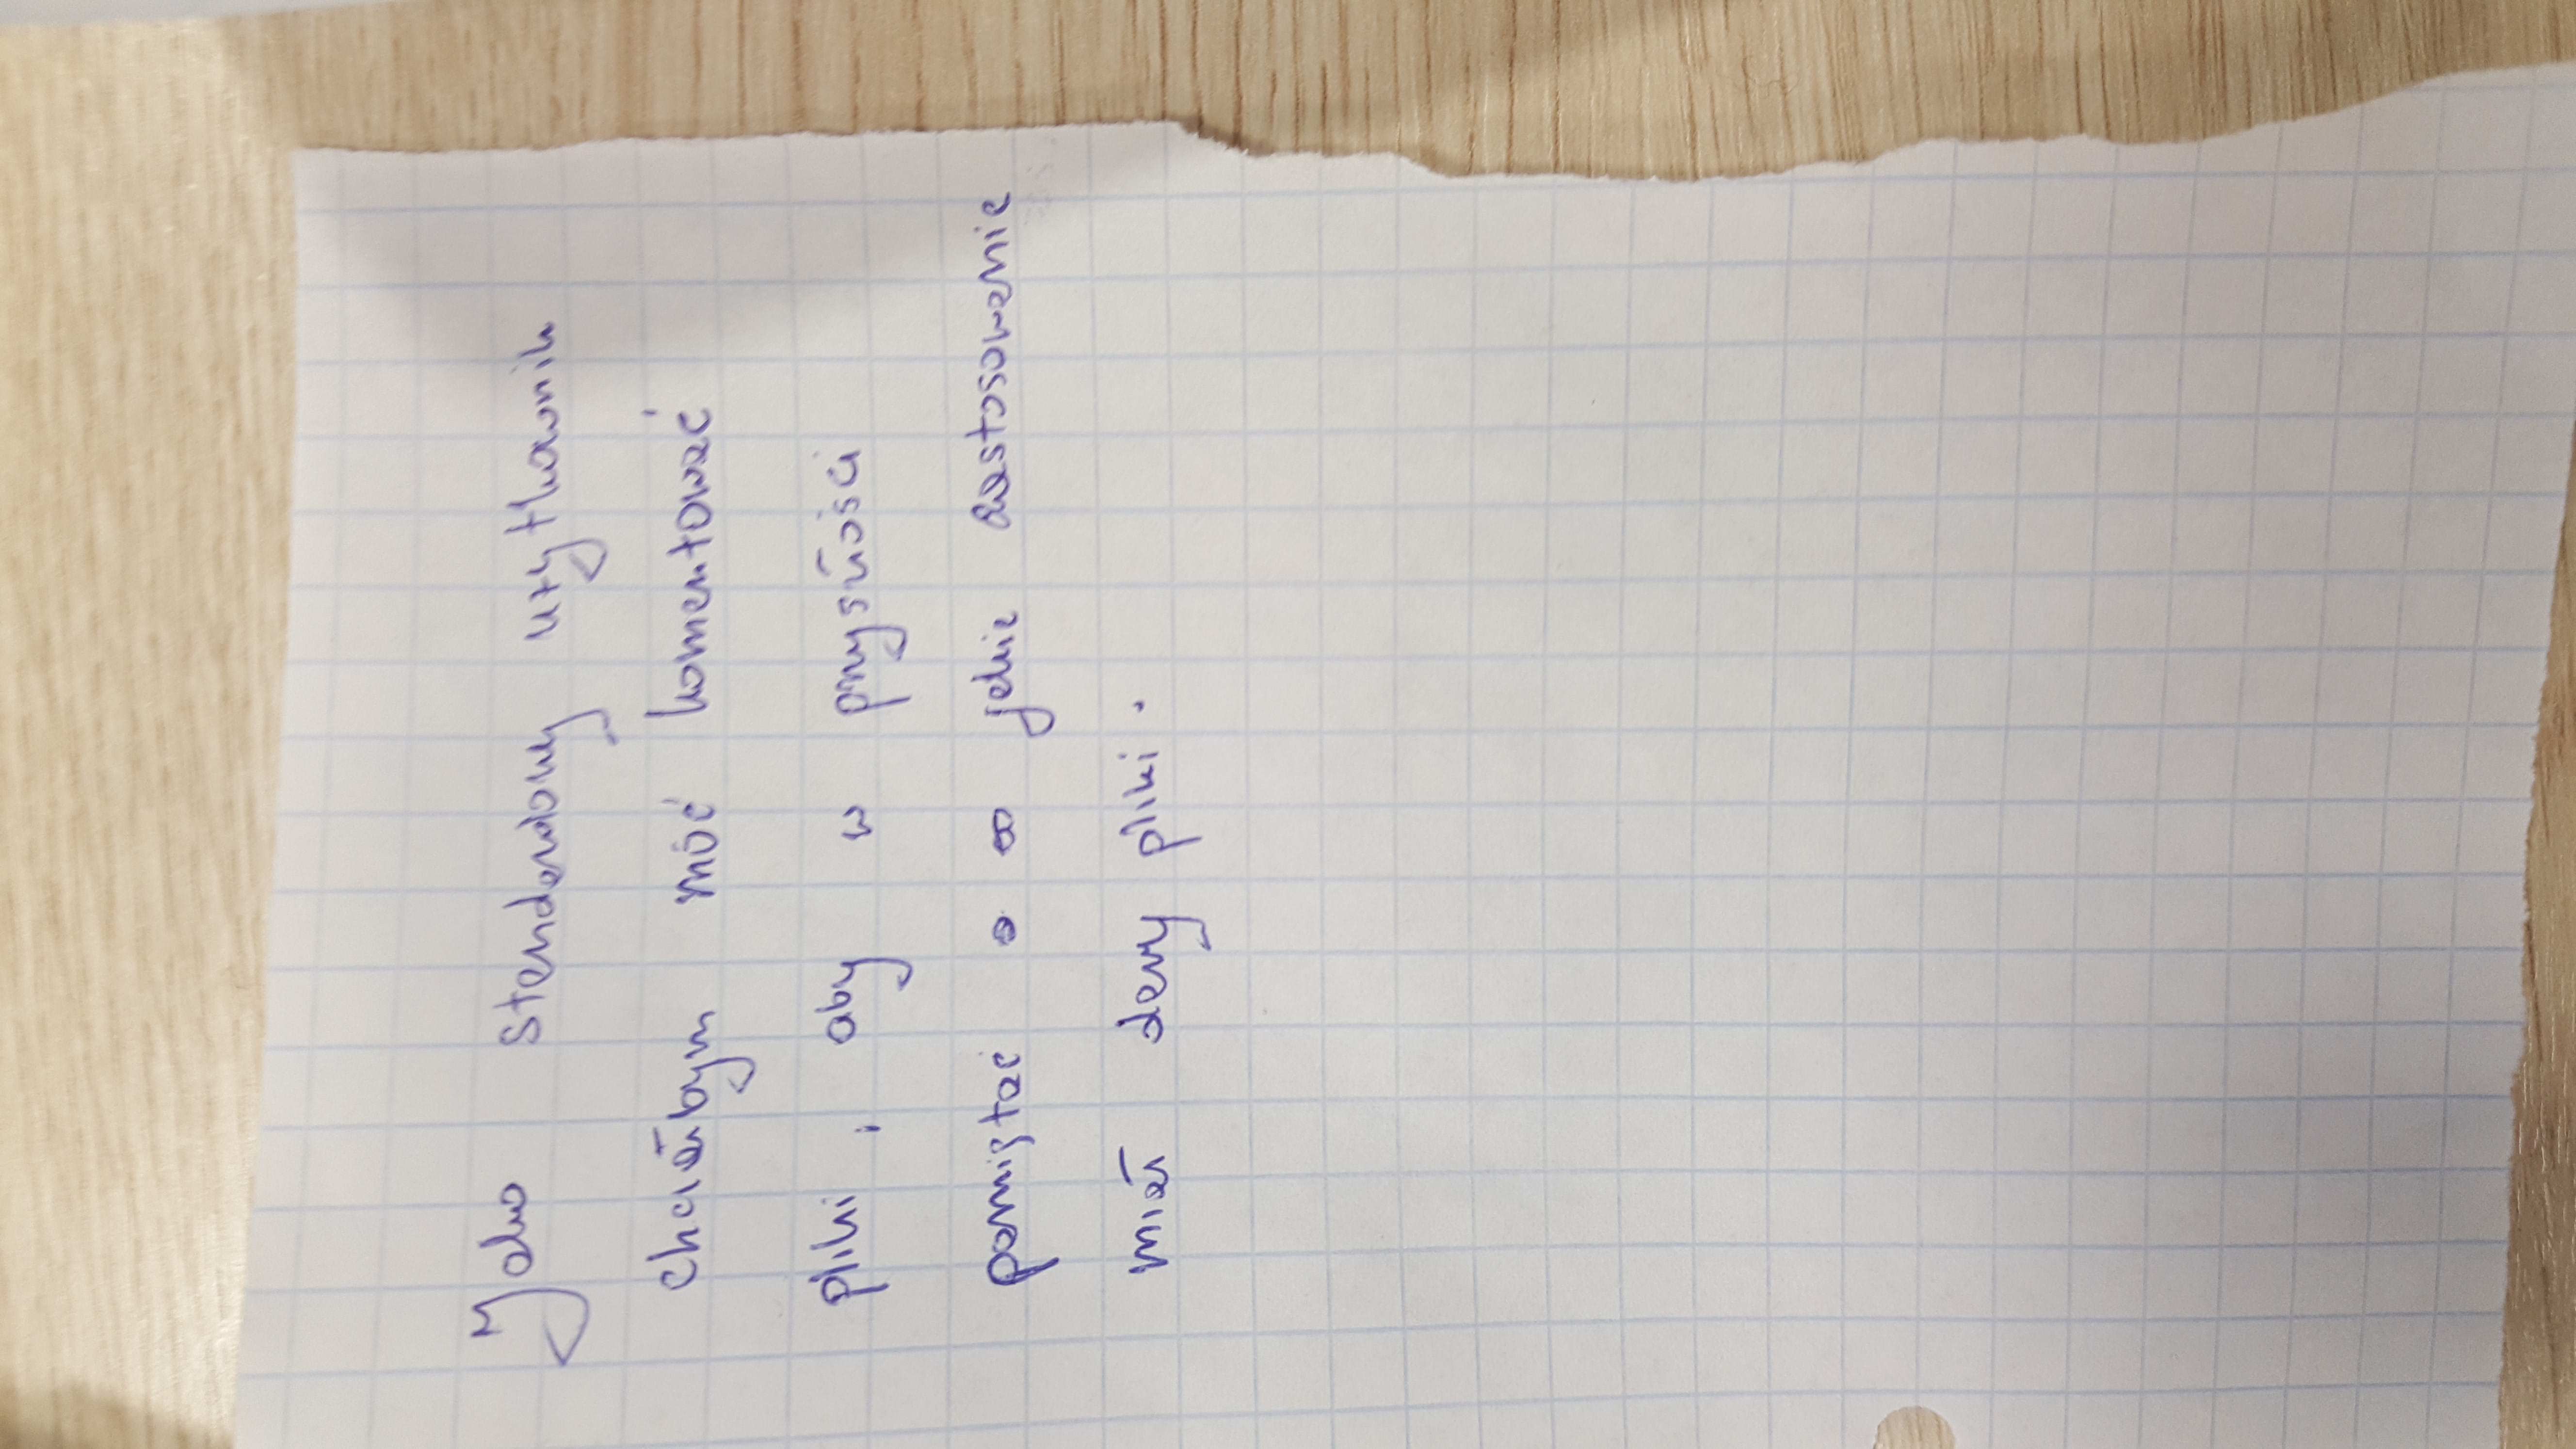 Jako standardowy użytkownik
chciałbym móc komentować
pliki, aby w przyszłości
pamiętać jakie zastosowanie
miał dany pliki.